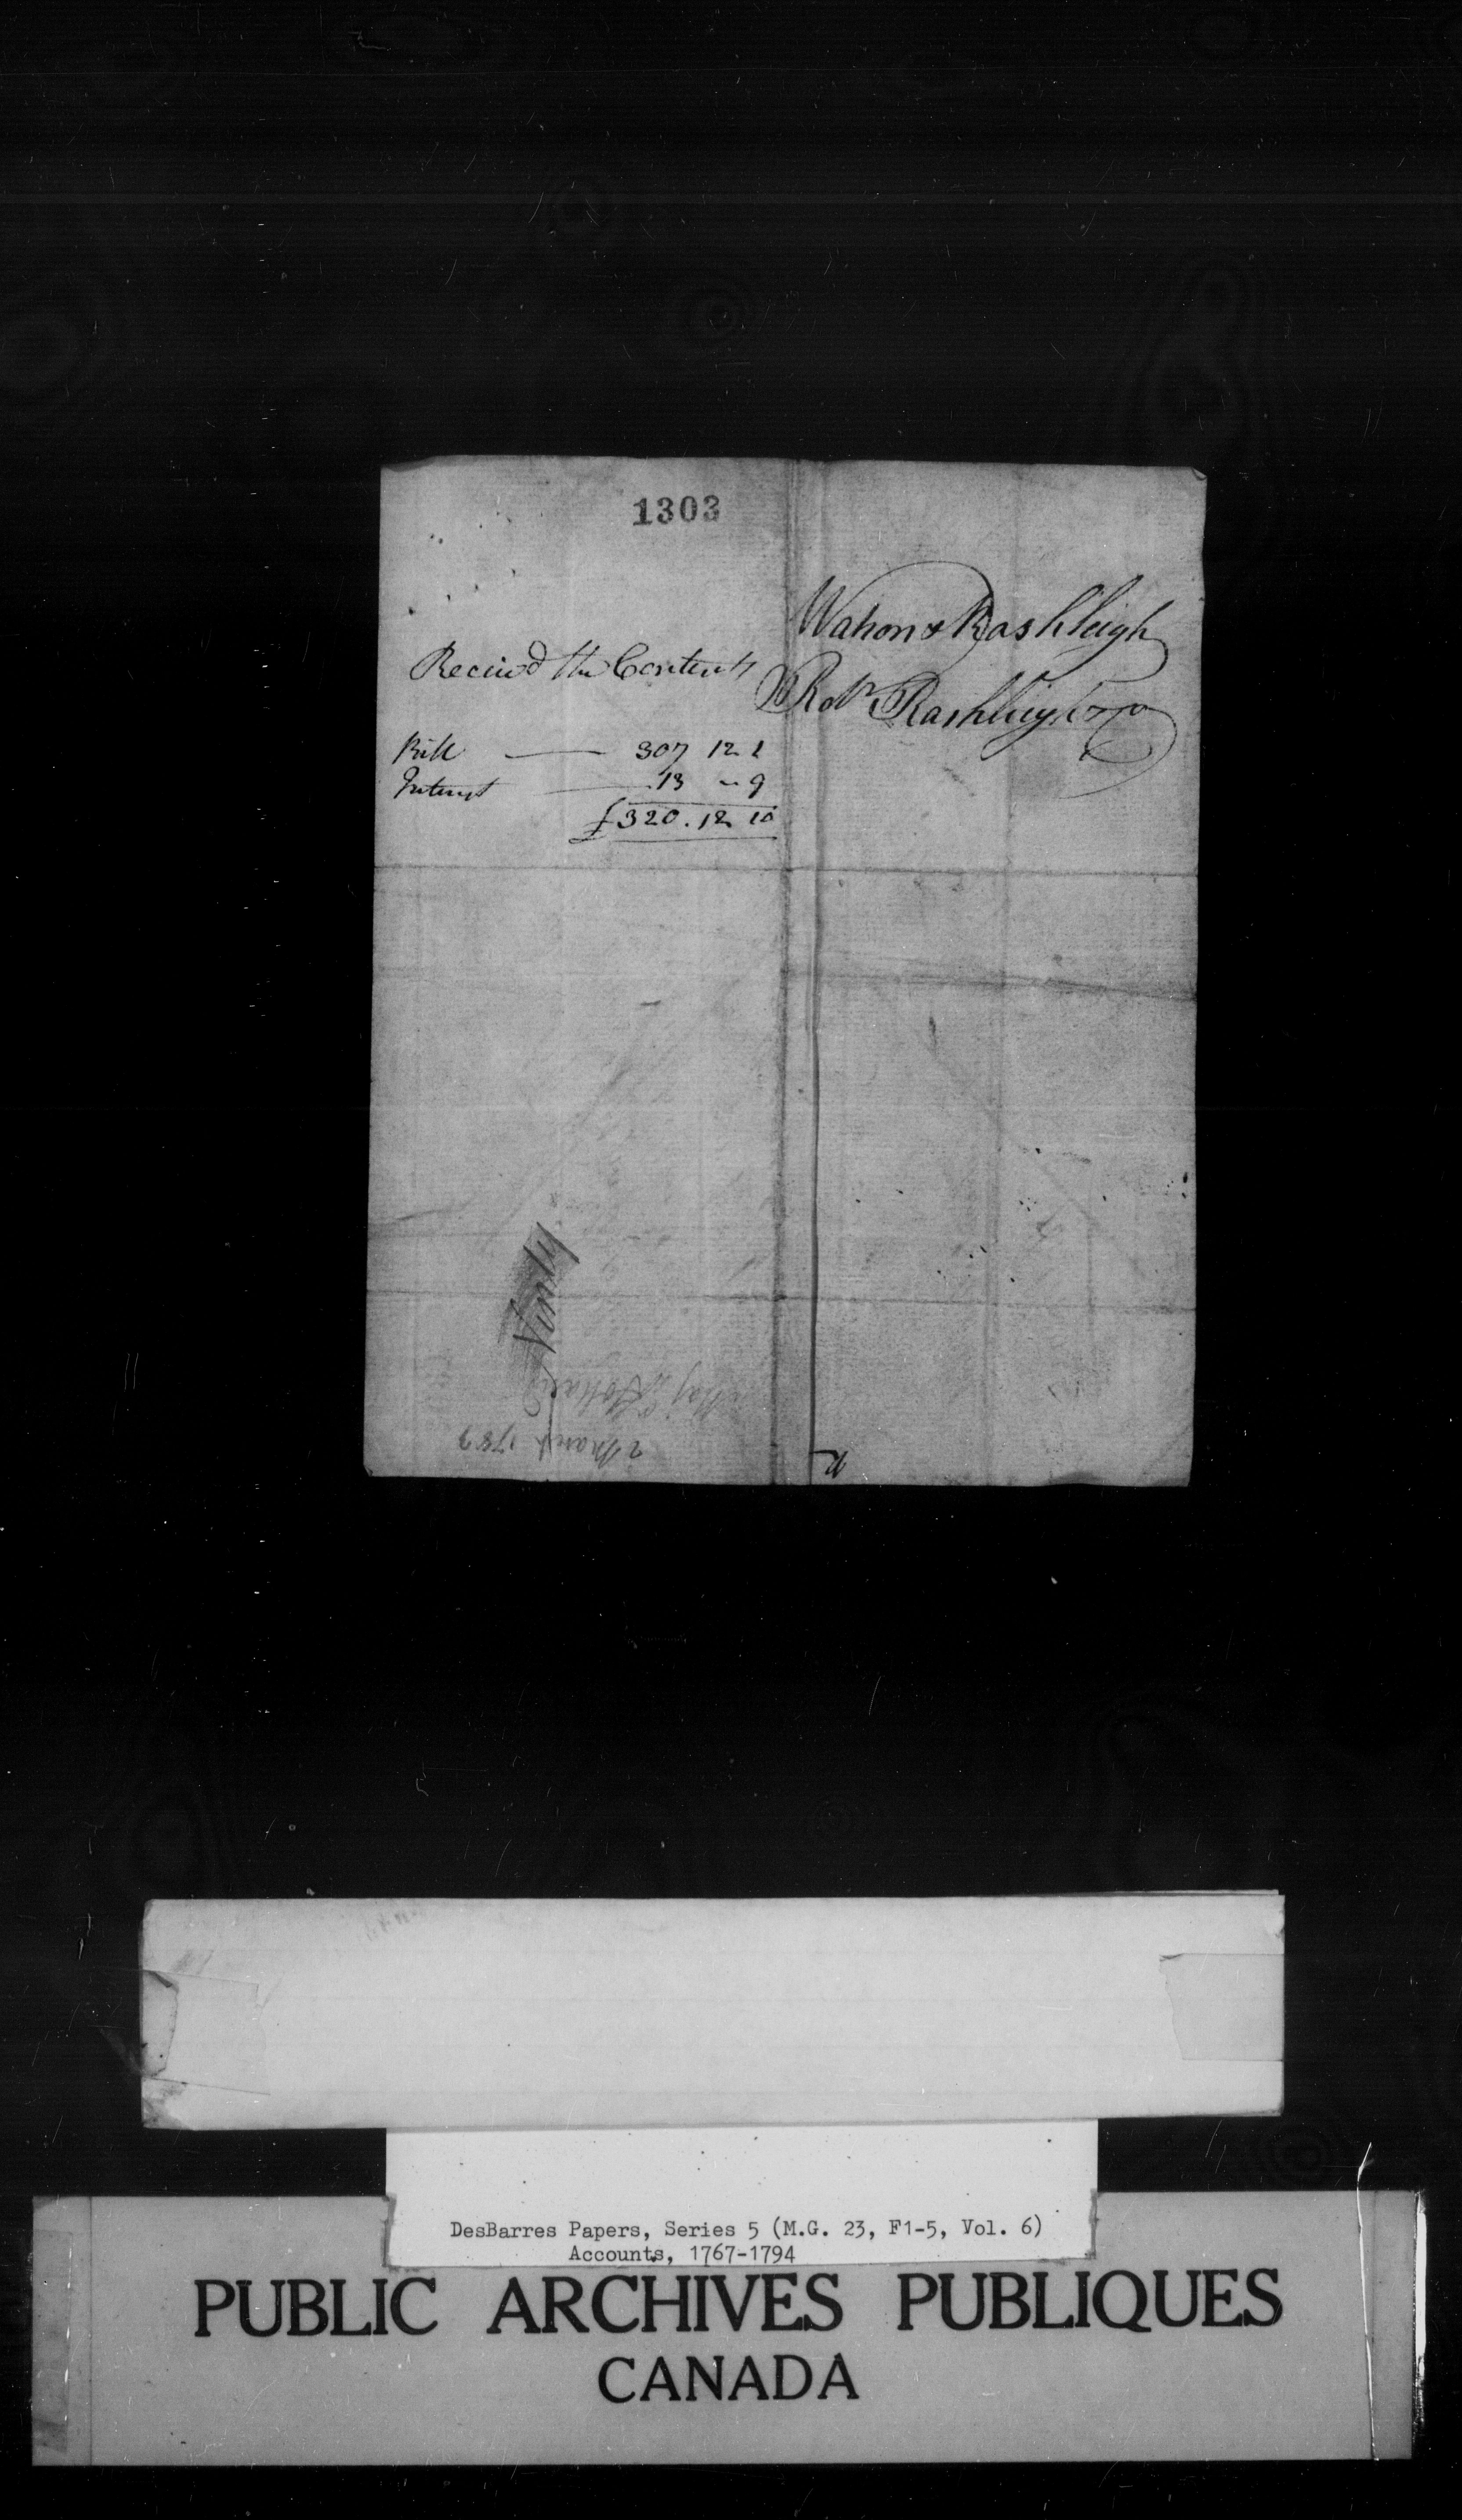 1303
Watson & Rashleigh
Receiv'd the Contents
Robt Rashleigh
Bill — 307 12 1
Interest — 13 " 9
£320. 12 10
2 March 1789
DesBarres Papers, Series 5 (M.G. 23, F1-5, Vol. 6)
Accounts, 1767-1794
PUBLIC ARCHIVES PUBLIQUES
CANADA